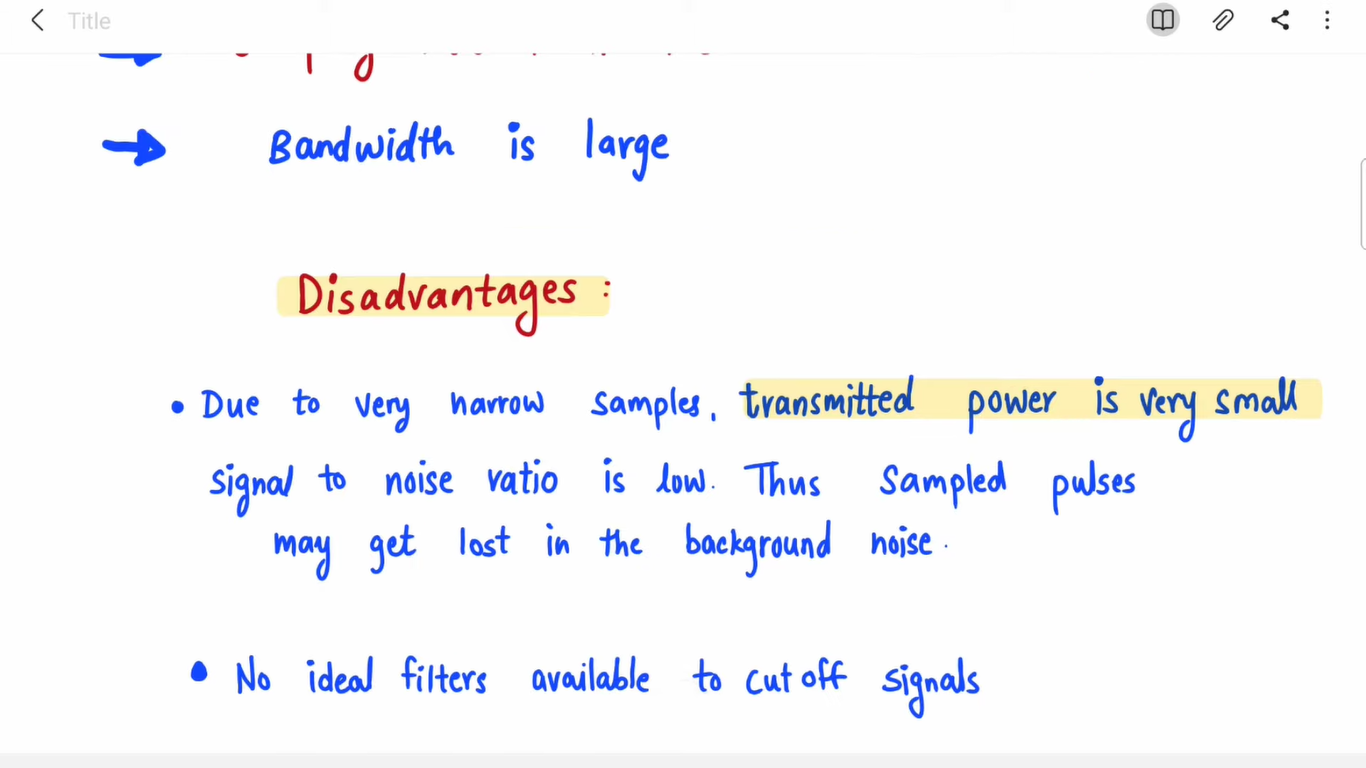 Title
→ Bandwidth is large
Disadvantages :
• Due to very narrow samples, transmitted power is very small
signal to noise ratio is low. Thus Sampled pulses
may get lost in the background noise.
• No ideal filters available to cut off signals